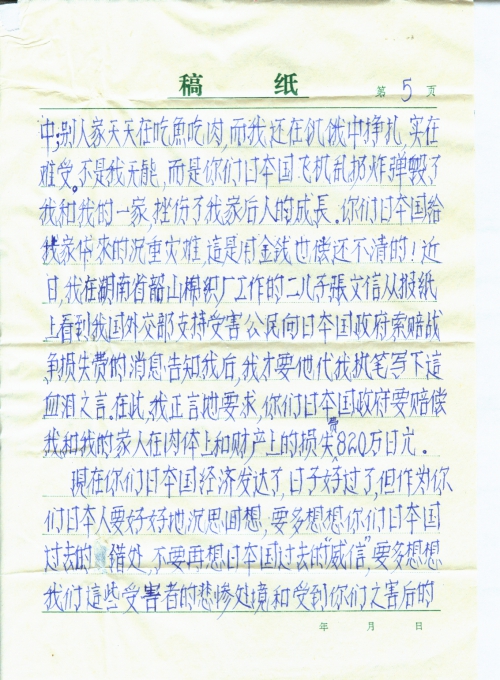 稿 纸
第 5 页
中,别人家天天在吃魚吃肉,而我还在饥饿中挣扎,实在
难受。不是我无能,而是你们日本国飞机乱扔炸弹毁了
我和我的一家,挫伤了我家后人的成長。你们日本国给
我家带来的沉重灾难,這是用金钱也偿还不清的!近
日,我在湖南省韶山棉织厂工作的二儿子張文信从报纸
上看到我国外交部支持受害公民向日本国政府索赔战
争损失费的消息告知我后,我才要他代我执笔写下這
血泪之言。在此,我正言地要求,你们日本国政府要赔偿
我和我的家人在肉体上和财产上的损失费820万日元。
現在你们日本国经济发达了,日子好过了,但作为你
们日本人要好好地沉思回想,要多想想你们日本国
过去的 错处,不要再想日本国过去的"威信",要多想想
我们這些受害者的悲惨处境和受到你们之害后的
年 月 日